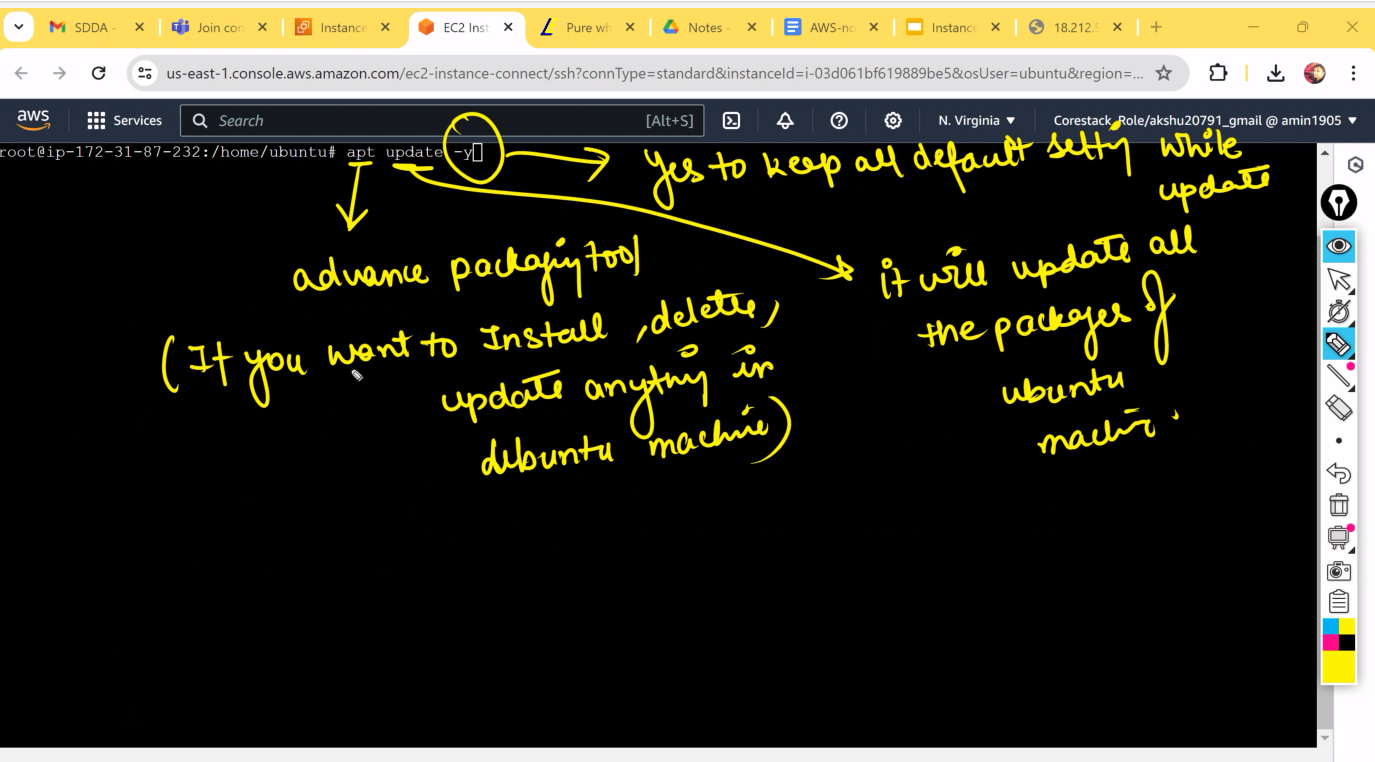 SDDA -
Join con
Instance
EC2 Inst
Pure wh
Notes -
AWS-no
Instance
18.212.5
us-east-1.console.aws.amazon.com/ec2-instance-connect/ssh?connType=standard&instanceId=i-03d061bf619889be5&osUser=ubuntu&region=...
aws
Services
Search
[Alt+S]
N. Virginia
Corestack_Role/akshu20791_gmail @ amin1905
root@ip-172-31-87-232:/home/ubuntu# apt update -y
yes to keep all default setty while
update
advance packaging tool
(If you want to Install, delete,
update anythng in
ubuntu machine)
it will update all
the packages of
ubuntu
machine.